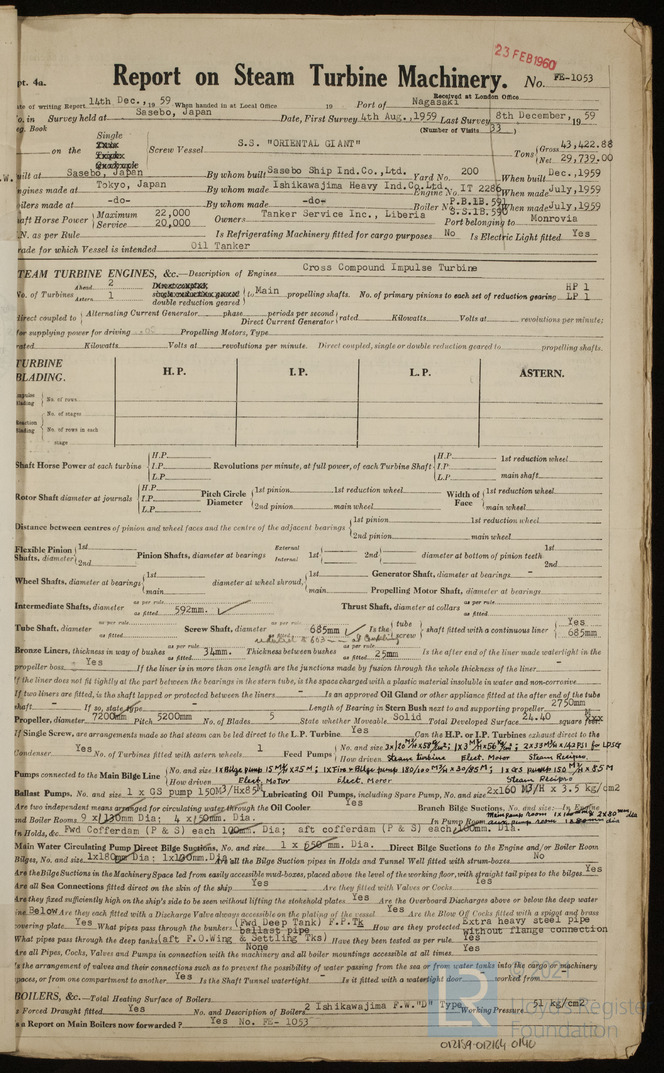 23 FEB 1960
pt. 4a. Report on Steam Turbine Machinery. No. FE-1053
Received at London Office
te of writing Report 14th Dec., 19 59 When handed in at Local Office 19 Port of Nagasaki
o. in Survey held at Sasebo, Japan Date, First Survey 4th Aug., 1959 Last Survey 8th December, 19 59
eg. Book (Number of Visits 33 )
Single
on the Screw Vessel S.S. "ORIENTAL GIANT" Tons Gross 43,422.88
Net 29,739.00
uilt at Sasebo, Japan By whom built Sasebo Ship Ind.Co., Ltd. Yard No. 200 When built Dec., 1959
ngines made at Tokyo, Japan By whom made Ishikawajima Heavy Ind.Co.Ltd. Engine No. IT 2286 When made July, 1959
oilers made at -do- By whom made -do- Boiler No. P.B.1B.591 S.S.1B.590 When made July, 1959
aft Horse Power Maximum 22,000 Service 20,000 Owners Tanker Service Inc., Liberia Port belonging to Monrovia
.N. as per Rule Is Refrigerating Machinery fitted for cargo purposes No Is Electric Light fitted Yes
rade for which Vessel is intended Oil Tanker
TEAM TURBINE ENGINES, &c.—Description of Engines Cross Compound Impulse Turbine
No. of Turbines Ahead 2 Astern 1 Direct coupled single reduction geared double reduction geared to Main propelling shafts. No. of primary pinions to each set of reduction gearing HP 1 LP 1
direct coupled to Alternating Current Generator phase periods per second Direct Current Generator rated Kilowatts Volts at revolutions per minute;
for supplying power for driving Propelling Motors, Type
rated Kilowatts Volts at revolutions per minute. Direct coupled, single or double reduction geared to propelling shafts.
TURBINE BLADING. H.P. I.P. L.P. ASTERN.
Impulse Blading No. of rows
No. of stages
Reaction Blading No. of rows in each stage
Shaft Horse Power at each turbine H.P. I.P. L.P. Revolutions per minute, at full power, of each Turbine Shaft H.P. I.P. L.P. 1st reduction wheel main shaft
Rotor Shaft diameter at journals H.P. I.P. L.P. Pitch Circle Diameter 1st pinion 1st reduction wheel 2nd pinion main wheel Width of Face 1st reduction wheel main wheel
Distance between centres of pinion and wheel faces and the centre of the adjacent bearings 1st pinion 1st reduction wheel
2nd pinion main wheel
Flexible Pinion Shafts, diameter 1st 2nd Pinion Shafts, diameter at bearings External Internal 1st 2nd diameter at bottom of pinion teeth 1st 2nd
Wheel Shafts, diameter at bearings 1st main diameter at wheel shroud, 1st main Generator Shaft, diameter at bearings -
Propelling Motor Shaft, diameter at bearings
Intermediate Shafts, diameter as per rule as fitted 592mm. Thrust Shaft, diameter at collars as per rule as fitted
Tube Shaft, diameter as per rule as fitted Screw Shaft, diameter as per rule as fitted 685mm Is the tube screw shaft fitted with a continuous liner Yes 685mm
Bronze Liners, thickness in way of bushes as per rule as fitted 34mm. Thickness between bushes as per rule as fitted 25mm Is the after end of the liner made watertight in the
propeller boss Yes If the liner is in more than one length are the junctions made by fusion through the whole length of the liner -
If the liner does not fit tightly at the part between the bearings in the stern tube, is the space charged with a plastic material insoluble in water and non-corrosive
If two liners are fitted, is the shaft lapped or protected between the liners - Is an approved Oil Gland or other appliance fitted at the after end of the tube
shaft - If so, state type - Length of Bearing in Stern Bush next to and supporting propeller 2750mm
Propeller, diameter 7200mm Pitch 5200mm No. of Blades 5 State whether Moveable Solid Total Developed Surface 24.40 square feet
If Single Screw, are arrangements made so that steam can be led direct to the L.P. Turbine Yes Can the H.P. or I.P. Turbines exhaust direct to the
Condenser Yes No. of Turbines fitted with astern wheels 1 Feed Pumps No. and size
How driven Steam turbine Elect. Motor Steam Recipro.
Pumps connected to the Main Bilge Line No. and size 1x Bilge pump 15 M³/H x 25M; 1x Fire & Bilge pump 180/100 M³/H x 30/85M; 1x GS pump 150 M³/H x 85M
How driven Elect. Motor Elect. Motor Steam Recipro.
Ballast Pumps, No. and size 1 x GS pump 150M3/Hx85M Lubricating Oil Pumps, including Spare Pump, No. and size 2x160 M3/H x 3.5 kg/cm2
Are two independent means arranged for circulating water through the Oil Cooler Yes Branch Bilge Suctions, No. and size:—In Engine
and Boiler Rooms 9 x 130mm Dia; 4 x 150mm. Dia. In Pump Room
In Holds, &c. Fwd Cofferdam (P & S) each 100mm. Dia; aft cofferdam (P & S) each 100mm. Dia.
Main Water Circulating Pump Direct Bilge Suctions, No. and size 1 x 650 mm. Dia. Direct Bilge Suctions to the Engine and/or Boiler Room
Bilges, No. and size 1x180mm Dia; 1x100mm.Dia. Are all the Bilge Suction pipes in Holds and Tunnel Well fitted with strum-boxes No
Are the Bilge Suctions in the Machinery Space led from easily accessible mud-boxes, placed above the level of the working floor, with straight tail pipes to the bilges Yes
Are all Sea Connections fitted direct on the skin of the ship Yes Are they fitted with Valves or Cocks Yes
Are they fixed sufficiently high on the ship's side to be seen without lifting the stokehold plates Yes Are the Overboard Discharges above or below the deep water
ine Below Are they each fitted with a Discharge Valve always accessible on the plating of the vessel Yes Are the Blow Off Cocks fitted with a spigot and brass
overing plate Yes What pipes pass through the bunkers (Fwd Deep Tank) F.P.Tk ballast pipe How are they protected Extra heavy steel pipe without flange connection
What pipes pass through the deep tanks (aft F.O.Wing & Settling Tks) None Have they been tested as per rule Yes
Are all Pipes, Cocks, Valves and Pumps in connection with the machinery and all boiler mountings accessible at all times Yes
Is the arrangement of valves and their connections such as to prevent the possibility of water passing from the sea or from water tanks into the cargo or machinery
spaces, or from one compartment to another Yes Is the Shaft Tunnel watertight - Is it fitted with a watertight door worked from
BOILERS, &c.—Total Heating Surface of Boilers
s Forced Draught fitted Yes No. and Description of Boilers 2 Ishikawajima F.W."D" Type Working Pressure 51 kg/cm2
s a Report on Main Boilers now forwarded? Yes No. FE- 1053
© 2021
LR Lloyd's Register Foundation
012159-012164-0140